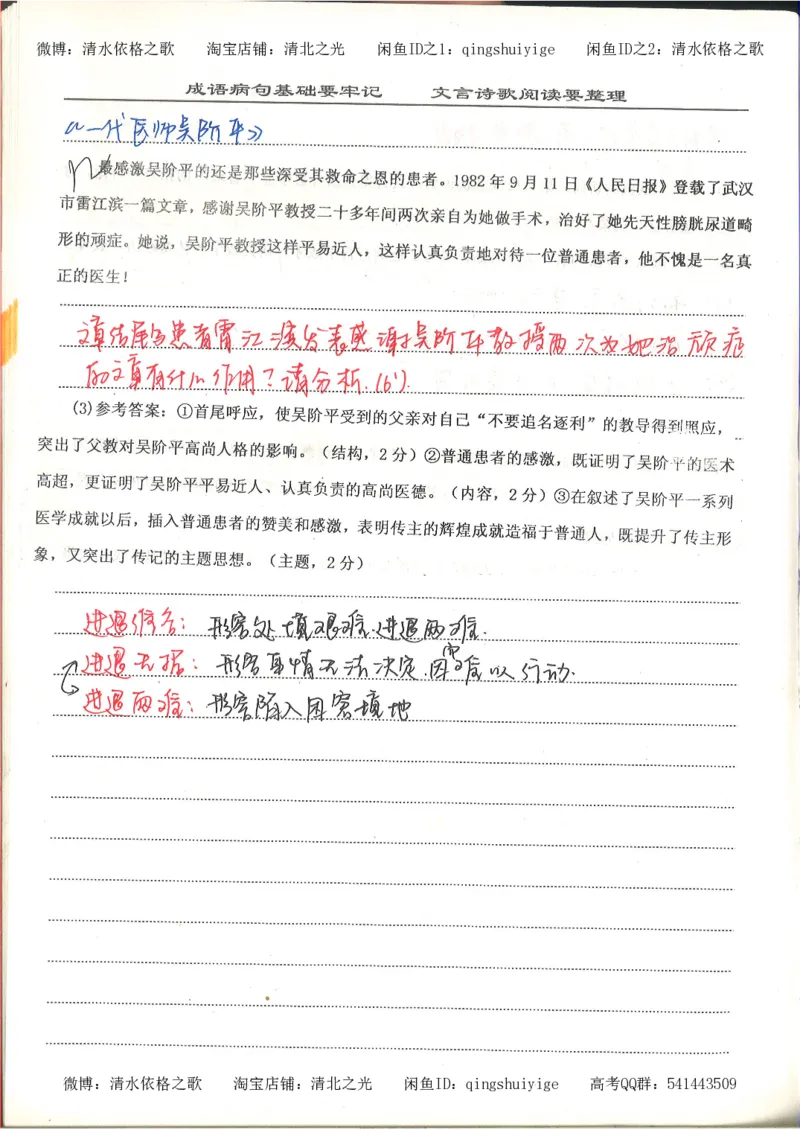 微博：清水依格之歌 淘宝店铺：清北之光 闲鱼ID之1：qingshuiyige 闲鱼ID之2：清水依格之歌
成语病句基础要牢记 文言诗歌阅读要整理
《一代医师吴阶平》
最感激吴阶平的还是那些深受其救命之恩的患者。1982年9月11日《人民日报》登载了武汉
市雷江滨一篇文章，感谢吴阶平教授二十多年间两次亲自为她做手术，治好了她先天性膀胱尿道畸
形的顽症。她说，吴阶平教授这样平易近人，这样认真负责地对待一位普通患者，他不愧是一名真
正的医生！
文章结尾写患者雷江滨发表感谢吴阶平教授两次为她治顽症
的文章有什么作用？请分析.(6')
(3)参考答案：①首尾呼应，使吴阶平受到的父亲对自己“不要追名逐利”的教导得到照应，
突出了父教对吴阶平高尚人格的影响。（结构，2分）②普通患者的感激，既证明了吴阶平的医术
高超，更证明了吴阶平平易近人、认真负责的高尚医德。（内容，2分）③在叙述了吴阶平一系列
医学成就以后，插入普通患者的赞美和感激，表明传主的辉煌成就造福于普通人，既提升了传主形
象，又突出了传记的主题思想。（主题，2分）
进退维谷：形容处境艰难.进退两难.
进退无据：形容事情无法决定.因而难以行动.
进退两难：形容陷入困窘境地
微博：清水依格之歌 淘宝店铺：清北之光 闲鱼ID：qingshuiyige 高考QQ群：541443509